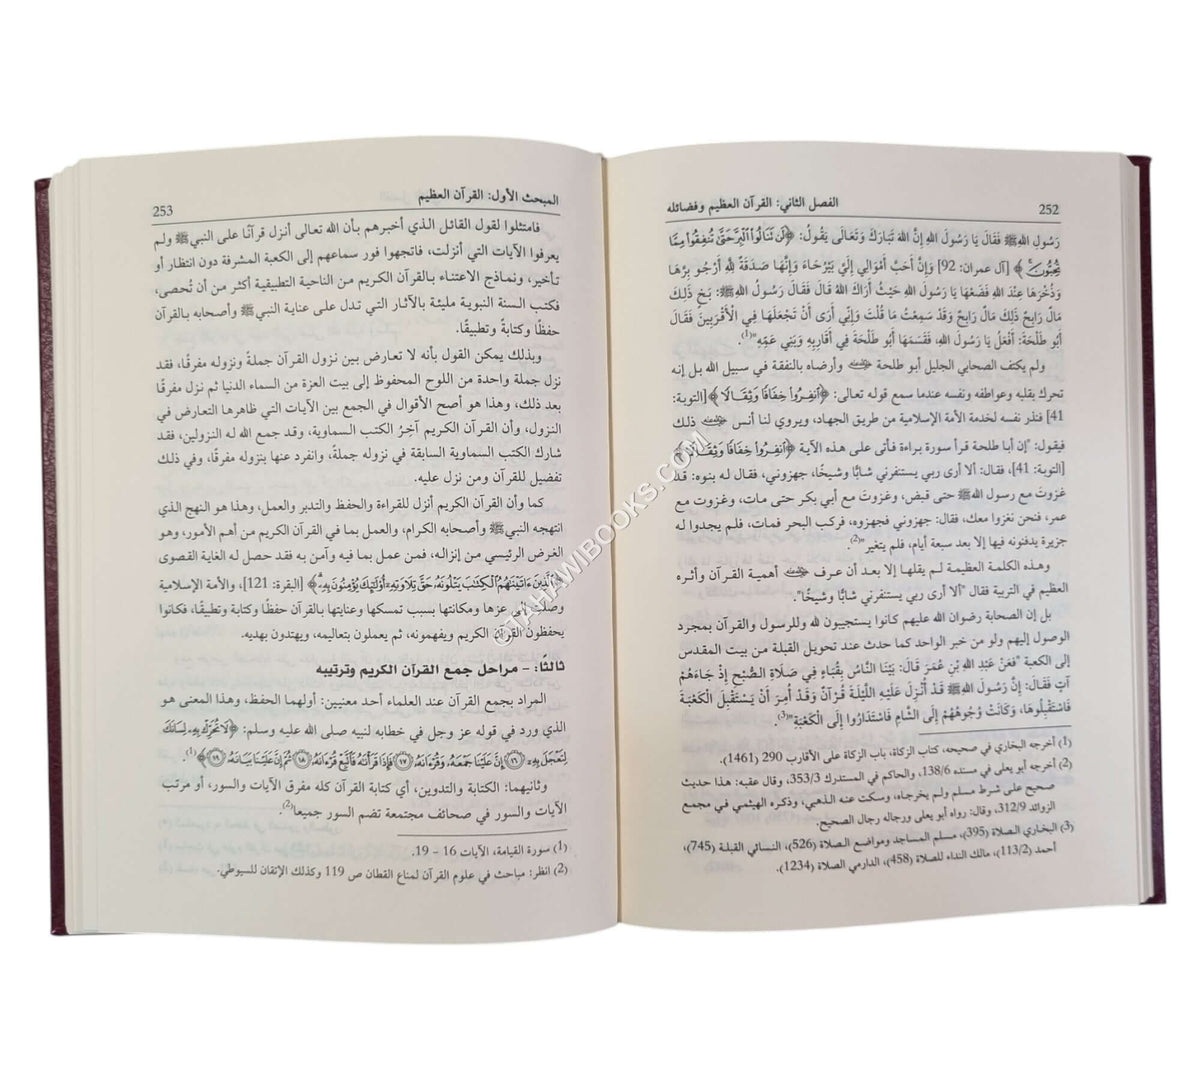 252
الفصل الثاني: القرآن العظيم وفضائله
رَسُولِ اللهِ ﷺ فَقَالَ يَا رَسُولَ اللهِ إِنَّ اللهَ تَبَارَكَ وَتَعَالَى يَقُولُ: ﴿لَن تَنَالُوا۟ ٱلْبِرَّ حَتَّىٰ تُنفِقُوا۟ مِمَّا
تُحِبُّونَ ﴾ [آل عمران: 92] وَإِنَّ أَحَبَّ أَمْوَالِي إِلَيَّ بَيْرُحَاءَ وَإِنَّهَا صَدَقَةٌ لِلَّهِ أَرْجُو بِرَّهَا
وَذُخْرَهَا عِنْدَ اللهِ فَضَعْهَا يَا رَسُولَ اللهِ حَيْثُ أَرَاكَ اللهُ قَالَ فَقَالَ رَسُولُ اللهِ ﷺ: بَخٍ ذَلِكَ
مَالٌ رَابِحٌ ذَلِكَ مَالٌ رَابِحٌ وَقَدْ سَمِعْتُ مَا قُلْتَ وَإِنِّي أَرَى أَنْ تَجْعَلَهَا فِي الْأَقْرَبِينَ فَقَالَ
أَبُو طَلْحَةَ: أَفْعَلُ يَا رَسُولَ اللهِ، فَقَسَمَهَا أَبُو طَلْحَةَ فِي أَقَارِبِهِ وَبَنِي عَمِّهِ"(1).
ولم يكتف الصحابي الجليل أبو طلحة رضي الله عنه وأرضاه بالنفقة في سبيل الله بل إنه
تحرك بقلبه وعواطفه ونفسه عندما سمع قوله تعالى: ﴿ٱنفِرُوا۟ خِفَافًا وَثِقَالًا﴾ [التوبة:
41] فنذر نفسه لخدمة الأمة الإسلامية من طريق الجهاد، ويروي لنا أنس رضي الله عنه ذلك
فيقول: "إن أبا طلحة قرأ سورة براءة فأتى على هذه الآية ﴿ٱنفِرُوا۟ خِفَافًا وَثِقَالًا﴾
[التوبة: 41]، فقال: ألا أرى ربي يستنفرني شابًّا وشيخًا، جهزوني، فقال له بنوه: قد
غزوتَ مع رسول الله ﷺ حتى قبض، وغزوتَ مع أبي بكر حتى مات، وغزوت مع
عمر، فنحن نغزوا معك، فقال: جهزوني فجهزوه، فركب البحر فمات، فلم يجدوا له
جزيرة يدفنونه فيها إلا بعد سبعة أيام، فلم يتغير"(2).
وهذه الكلمة العظيمة لم يقلها إلا بعد أن عرف رضي الله عنه أهمية القرآن وأثره
العظيم في التربية فقال "ألا أرى ربي يستنفرني شابًّا وشيخًا".
بل إن الصحابة رضوان الله عليهم كانوا يستجيبون لله وللرسول والقرآن بمجرد
الوصول إليهم ولو من خبر الواحد كما حدث عند تحويل القبلة من بيت المقدس
إلى الكعبة "فعَنْ عَبْدِ اللهِ بْنِ عُمَرَ قَالَ: بَيْنَا النَّاسُ بِقُبَاءٍ فِي صَلَاةِ الصُّبْحِ إِذْ جَاءَهُمْ
آتٍ فَقَالَ: إِنَّ رَسُولَ اللهِ ﷺ قَدْ أُنْزِلَ عَلَيْهِ اللَّيْلَةَ قُرْآنٌ وَقَدْ أُمِرَ أَنْ يَسْتَقْبِلَ الْكَعْبَةَ
فَاسْتَقْبِلُوهَا، وَكَانَتْ وُجُوهُهُمْ إِلَى الشَّامِ فَاسْتَدَارُوا إِلَى الْكَعْبَةِ"(3).
(1) أخرجه البخاري في صحيحه، كتاب الزكاة، باب الزكاة على الأقارب 290 (1461).
(2) أخرجه أبو يعلى في مسنده 138/6، والحاكم في المستدرك 353/3، وقال عقبه: هذا حديث
صحيح على شرط مسلم ولم يخرجاه، وسكت عنه الذهبي، وذكره الهيثمي في مجمع
الزوائد 312/9، وقال: رواه أبو يعلى ورجاله رجال الصحيح.
(3) البخاري الصلاة (395)، مسلم المساجد ومواضع الصلاة (526)، النسائي القبلة (745)،
أحمد (113/2)، مالك النداء للصلاة (458)، الدارمي الصلاة (1234).
المبحث الأول: القرآن العظيم
253
فامتثلوا لقول القائل الذي أخبرهم بأن الله تعالى أنزل قرآنًا على النبي ﷺ ولم
يعرفوا الآيات التي أنزلت، فاتجهوا فور سماعهم إلى الكعبة المشرفة دون انتظار أو
تأخير، ونماذج الاعتناء بالقرآن الكريم من الناحية التطبيقية أكثر من أن تُحصى،
فكتب السنة النبوية مليئة بالآثار التي تدل على عناية النبي ﷺ وأصحابه بالقرآن
حفظًا وكتابةً وتطبيقًا.
وبذلك يمكن القول بأنه لا تعارض بين نزول القرآن جملةً ونزوله مفرقًا، فقد
نزل جملة واحدة من اللوح المحفوظ إلى بيت العزة من السماء الدنيا ثم نزل مفرقًا
بعد ذلك، وهذا هو أصح الأقوال في الجمع بين الآيات التي ظاهرها التعارض في
النزول، وأن القرآن الكريم آخِرُ الكتب السماوية، وقد جمع الله له النزولين، فقد
شارك الكتب السماوية السابقة في نزوله جملةً، وانفرد عنها بنزوله مفرقًا، وفي ذلك
تفضيل للقرآن ومن نزل عليه.
كما وأن القرآن الكريم أنزل للقراءة والحفظ والتدبر والعمل، وهذا هو النهج الذي
انتهجه النبي ﷺ وأصحابه الكرام، والعمل بما في القرآن الكريم من أهم الأمور، وهو
الغرض الرئيسي من إنزاله، فمن عمل بما فيه وآمن به فقد حصل له الغاية القصوى
﴿ٱلَّذِينَ ءَاتَيْنَٰهُمُ ٱلْكِتَٰبَ يَتْلُونَهُۥ حَقَّ تِلَاوَتِهِۦٓ أُو۟لَٰٓئِكَ يُؤْمِنُونَ بِهِۦ﴾ [البقرة: 121]، والأمة الإسلامية
وصلت إلى عزها ومكانتها بسبب تمسكها وعنايتها بالقرآن حفظًا وكتابة وتطبيقًا، فكانوا
يحفظون القرآن الكريم ويفهمونه، ثم يعملون بتعاليمه، ويهتدون بهديه.
ثالثًا: - مراحل جمع القرآن الكريم وترتيبه
المراد بجمع القرآن عند العلماء أحد معنيين: أولهما الحفظ، وهذا المعنى هو
الذي ورد في قوله عز وجل في خطابه لنبيه صلى الله عليه وسلم: ﴿لَا تُحَرِّكْ بِهِۦ لِسَانَكَ
لِتَعْجَلَ بِهِۦٓ ۝١٦ إِنَّ عَلَيْنَا جَمْعَهُۥ وَقُرْءَانَهُۥ ۝١٧ فَإِذَا قَرَأْنَٰهُ فَٱتَّبِعْ قُرْءَانَهُۥ ۝١٨ ثُمَّ إِنَّ عَلَيْنَا بَيَانَهُۥ ۝١٩﴾(1).
وثانيهما: الكتابة والتدوين، أي كتابة القرآن كله مفرق الآيات والسور، أو مرتب
الآيات والسور في صحائف مجتمعة تضم السور جميعا(2).
(1) سورة القيامة، الآيات 16 - 19.
(2) انظر: مباحث في علوم القرآن لمناع القطان ص 119 وكذلك الإتقان للسيوطي.
TAHAWIBOOKS.COM